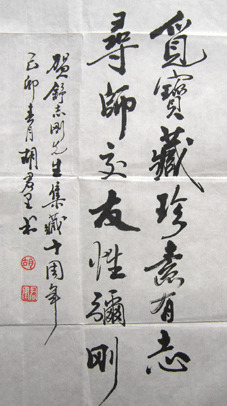 覓寶藏珍素有志
尋師交友性彌剛
贺舒志剛先生集藏十周年
己卯春月胡君书
胡